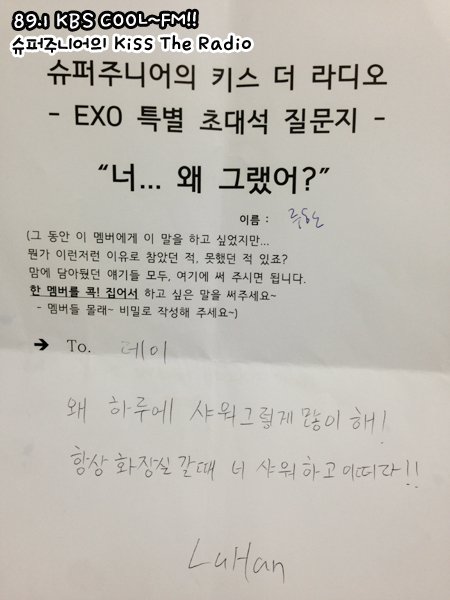 89.1 KBS COOL~FM!!
슈퍼주니어의 Kiss The Radio
슈퍼주니어의 키스 더 라디오
- EXO 특별 초대석 질문지 -
“너... 왜 그랬어?”
이름 : 루한
(그 동안 이 멤버에게 이 말을 하고 싶었지만...
뭔가 이런저런 이유로 참았던 적, 못했던 적 있죠?
맘에 담아뒀던 얘기들 모두, 여기에 써 주시면 됩니다.
한 멤버를 콕! 집어서 하고 싶은 말을 써주세요~
- 멤버들 몰래~ 비밀로 작성해 주세요~)
➔ To. 레이
왜 하루에 샤워그렇게 많이 해!
항상 화장실 갈때 너 샤워하고이떠라!!
LuHan